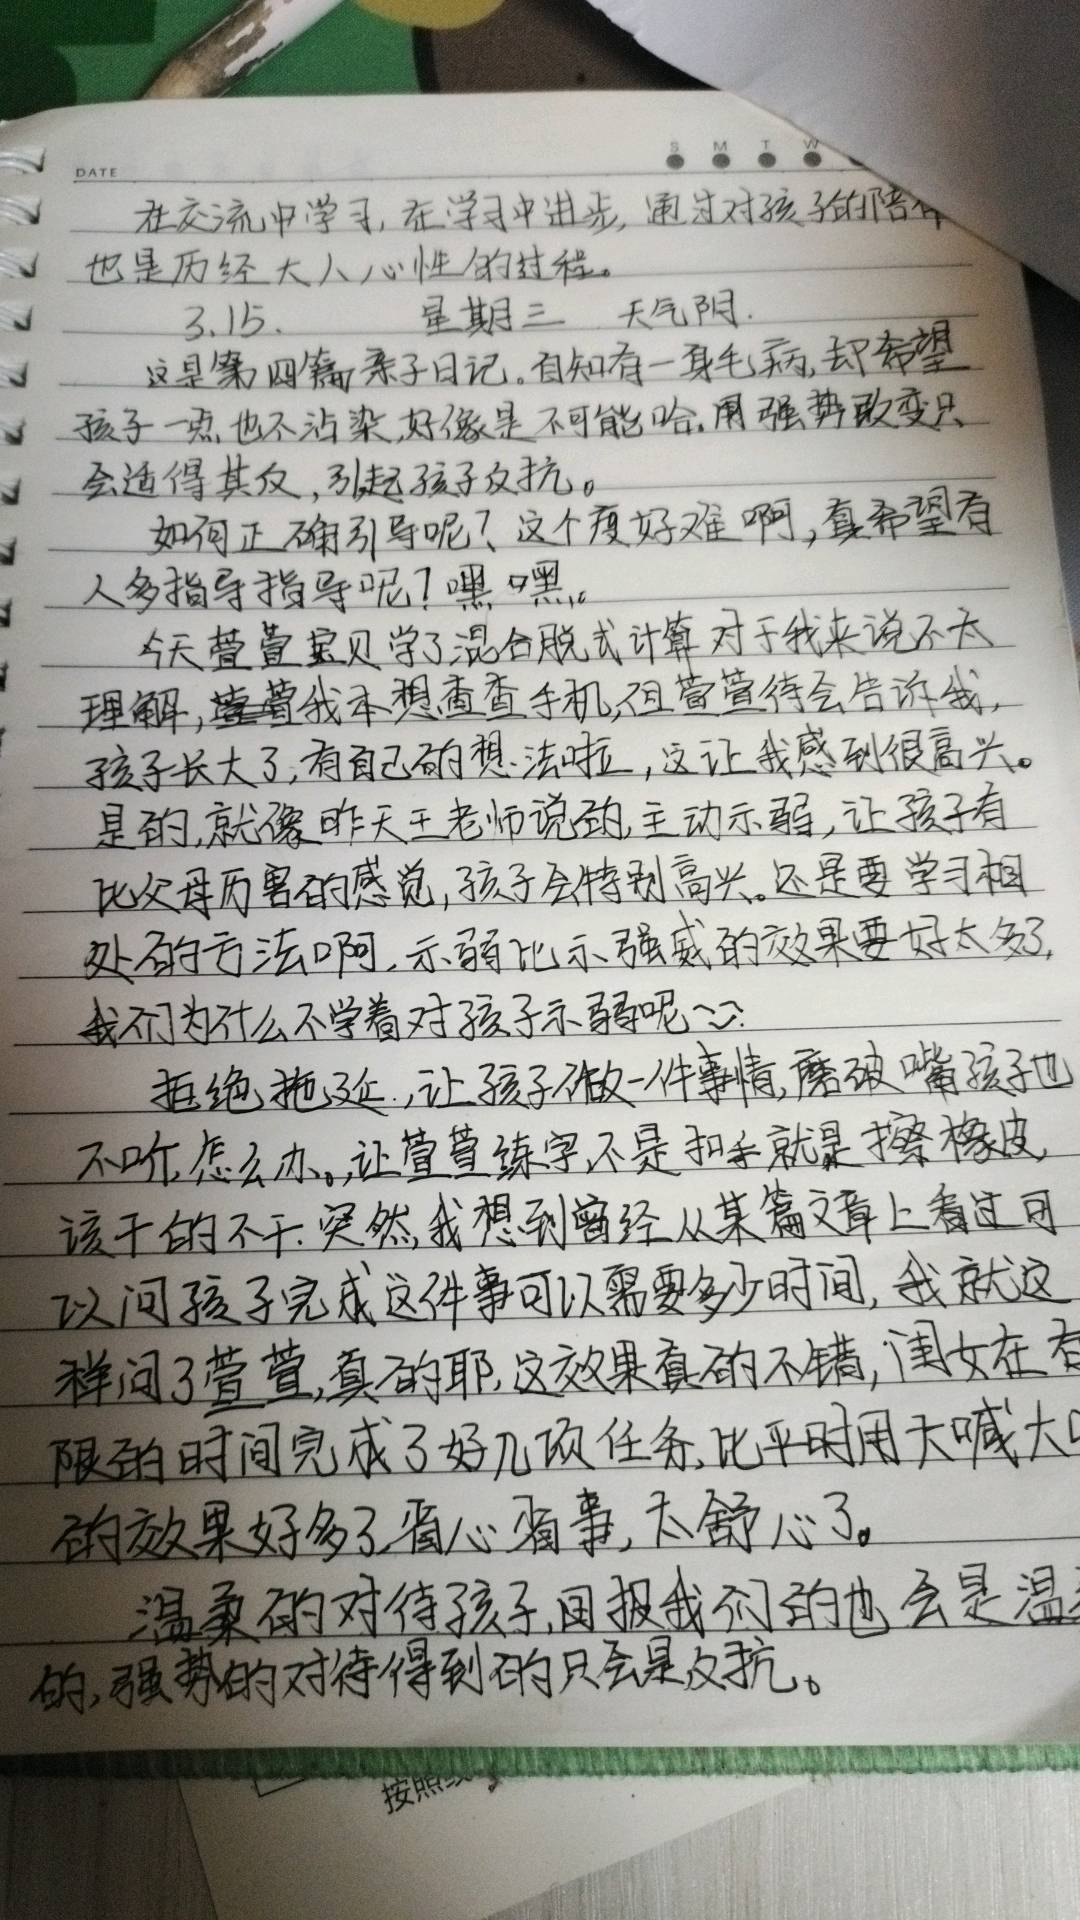 DATE
S M T W
在交流中学习,在学习中进步,通过对孩子的陪伴
也是历经大人心性的过程。
3.15. 星期三 天气阴.
这是第四篇亲子日记。自知有一身毛病,却希望
孩子一点也不沾染,好像是不可能哈.用强势改变只
会适得其反,引起孩子反抗。
如何正确引导呢?这个度好难啊,真希望有
人多指导指导呢?嘿嘿。
今天萱萱宝贝学了混合脱式计算对于我来说不太
理解,我本想查查手机,但萱萱待会告诉我,
孩子长大了,有自己的想法啦,这让我感到很高兴。
是的,就像昨天王老师说的,主动示弱,让孩子有
比父母历害的感觉,孩子会特别高兴。还是要学习相
处的方法啊,示弱比示强威的效果要好太多了,
我们为什么不学着对孩子示弱呢~
拒绝拖延,让孩子做一件事情,磨破嘴孩子也
不听,怎么办。,让萱萱练字,不是扣手就是擦橡皮,
该干的不干.突然,我想到曾经从某篇文章上看过可
以问孩子完成这件事可以需要多少时间,我就这
样问了萱萱,真的耶,这效果真的不错,闺女在有
限的时间完成了好几项任务,比平时用大喊大
的效果好多了,省心省事,太舒心了。
温柔的对待孩子,回报我们的也会是温
的,强势的对待得到的只会是反抗。
按照